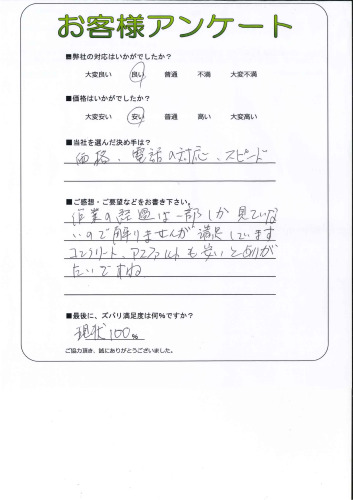 お客様アンケート
■弊社の対応はいかがでしたか？
大変良い 良い 普通 不満 大変不満
■価格はいかがでしたか？
大変安い 安い 普通 高い 大変高い
■当社を選んだ決め手は？
価格、電話の対応、スピード
■ご感想・ご要望などをお書き下さい。
作業の経過は一部しか見ていな
いので解りませんが満足しています
コンクリート、アスファルトも安いとありが
たいですね
■最後に、ズバリ満足度は何％ですか？
現状100％
ご協力頂き、誠にありがとうございました。